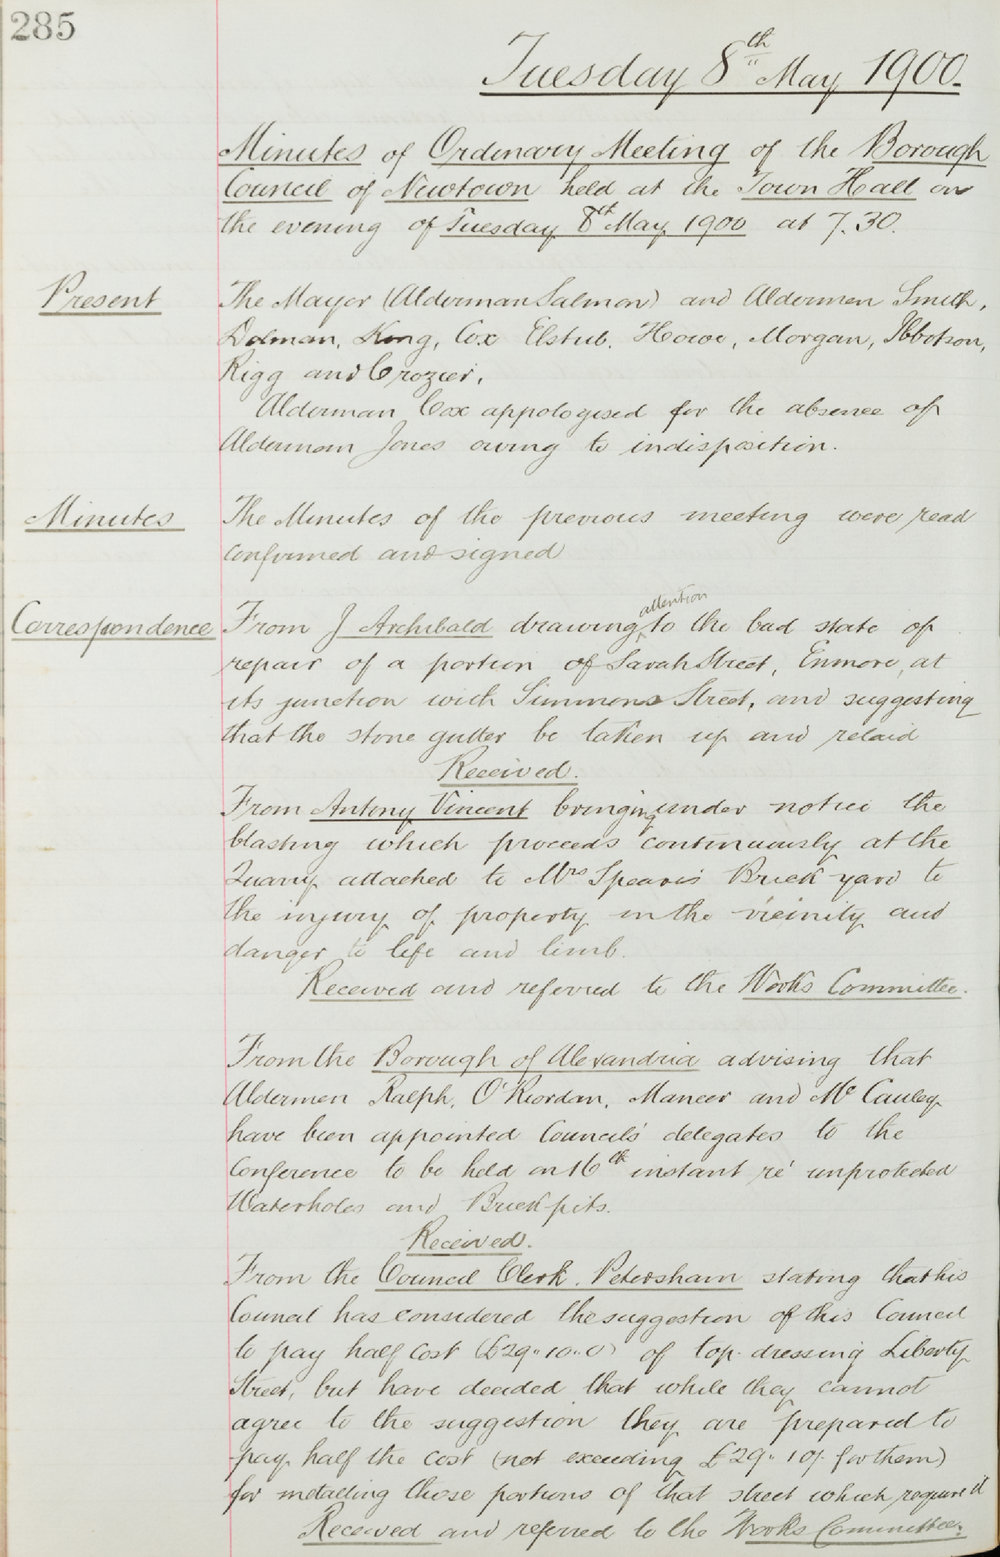 285
Tuesday 8th May 1900.
Minutes of Ordinary Meeting of the Borough
Council of Newtown held at the Town Hall on
the evening of Tuesday 8th May 1900 at 7.30.
Present
The Mayor (Alderman Salmon) and Aldermen Smith,
Dolman, King, Cox Elstub. Howe, Morgan, Ibbotson,
Rigg and Crozier.
Alderman Cox appologised for the absence of
Alderman Jones owing to indisposition.
Minutes
The Minutes of the previous meeting were read
confirmed and signed
Correspondence
From J Archibald drawing attention to the bad state of
repair of a portion of Sarah Street, Enmore, at
its junction with Simmons Street, and suggesting
that the stone gutter be taken up and relaid
Received.
From Antony Vincent bringing under notice the
blasting which proceeds continuously at the
Quarry attached to Mrs Speare's Brick yard to
the injury of property in the vicinity and
danger to life and limb.
Received and referred to the Works Committee.
From the Borough of Alexandria advising that
Aldermen Ralph, O'Riordan, Maneer and McCauley
have been appointed Council's delegates to the
Conference to be held on 16th instant re' unprotected
Waterholes and Brickpits.
Received.
From the Council Clerk. Petersham stating that his
Council has considered the suggestion of this Council
to pay half cost (£29.10.0) of top-dressing Liberty
Street, but have decided that while they cannot
agree to the suggestion they are prepared to
pay half the cost (not exceeding £29.10/. for them)
for metalling those portions of that street which require it
Received and referred to the Works Committee.